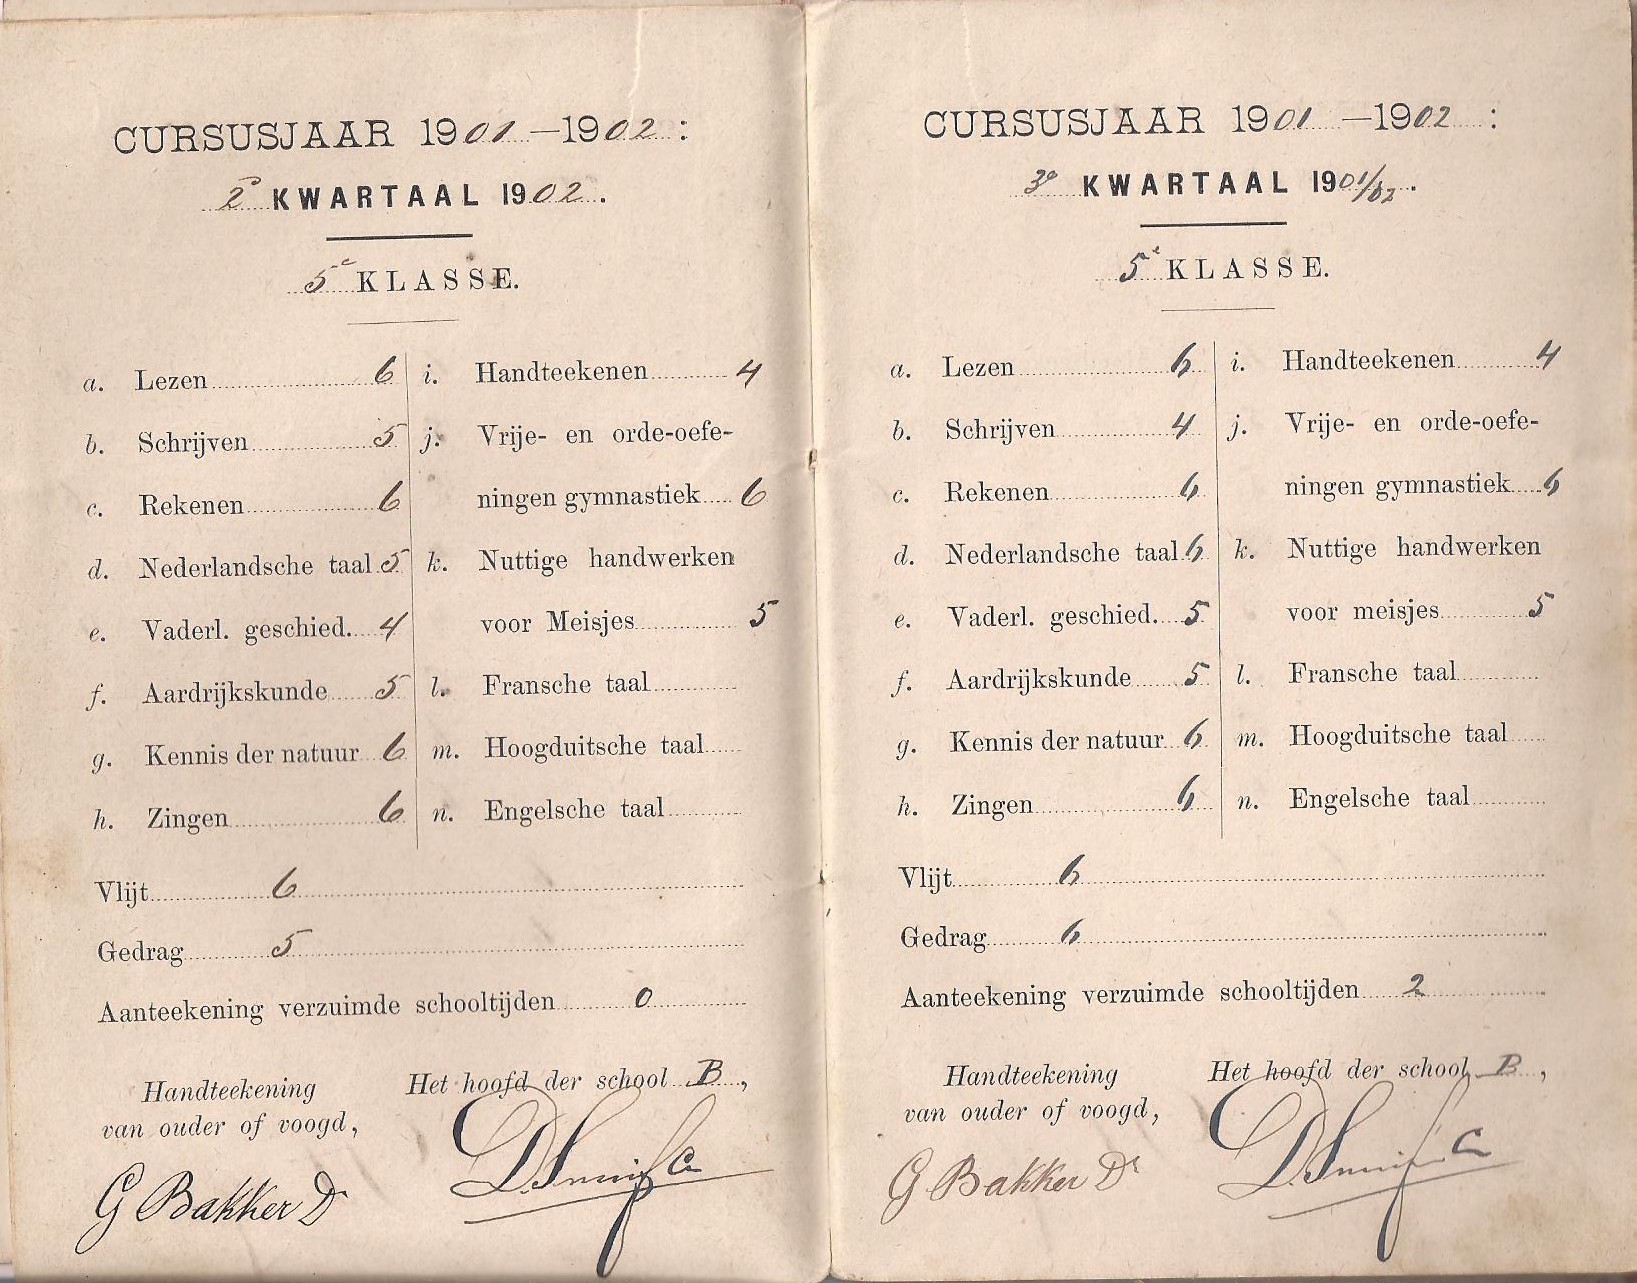 CURSUSJAAR 1901–1902:
2e KWARTAAL 1902.
5e KLASSE.
a. Lezen 6
b. Schrijven 5
c. Rekenen 6
d. Nederlandsche taal 5
e. Vaderl. geschied. 4
f. Aardrijkskunde 5
g. Kennis der natuur 6
h. Zingen 6
i. Handteekenen 4
j. Vrije- en orde-oefe-
ningen gymnastiek 6
k. Nuttige handwerken
voor Meisjes 5
l. Fransche taal
m. Hoogduitsche taal
n. Engelsche taal
Vlijt 6
Gedrag 5
Aanteekening verzuimde schooltijden 0
Handteekening
van ouder of voogd,
G Bakker Dz
Het hoofd der school B,
CURSUSJAAR 1901–1902:
3e KWARTAAL 1901/02.
5e KLASSE.
a. Lezen 6
b. Schrijven 4
c. Rekenen 6
d. Nederlandsche taal 6
e. Vaderl. geschied. 5
f. Aardrijkskunde 5
g. Kennis der natuur 6
h. Zingen 6
i. Handteekenen 4
j. Vrije- en orde-oefe-
ningen gymnastiek 6
k. Nuttige handwerken
voor meisjes 5
l. Fransche taal
m. Hoogduitsche taal
n. Engelsche taal
Vlijt 6
Gedrag 6
Aanteekening verzuimde schooltijden 2
Handteekening
van ouder of voogd,
G Bakker Dz
Het hoofd der school B,